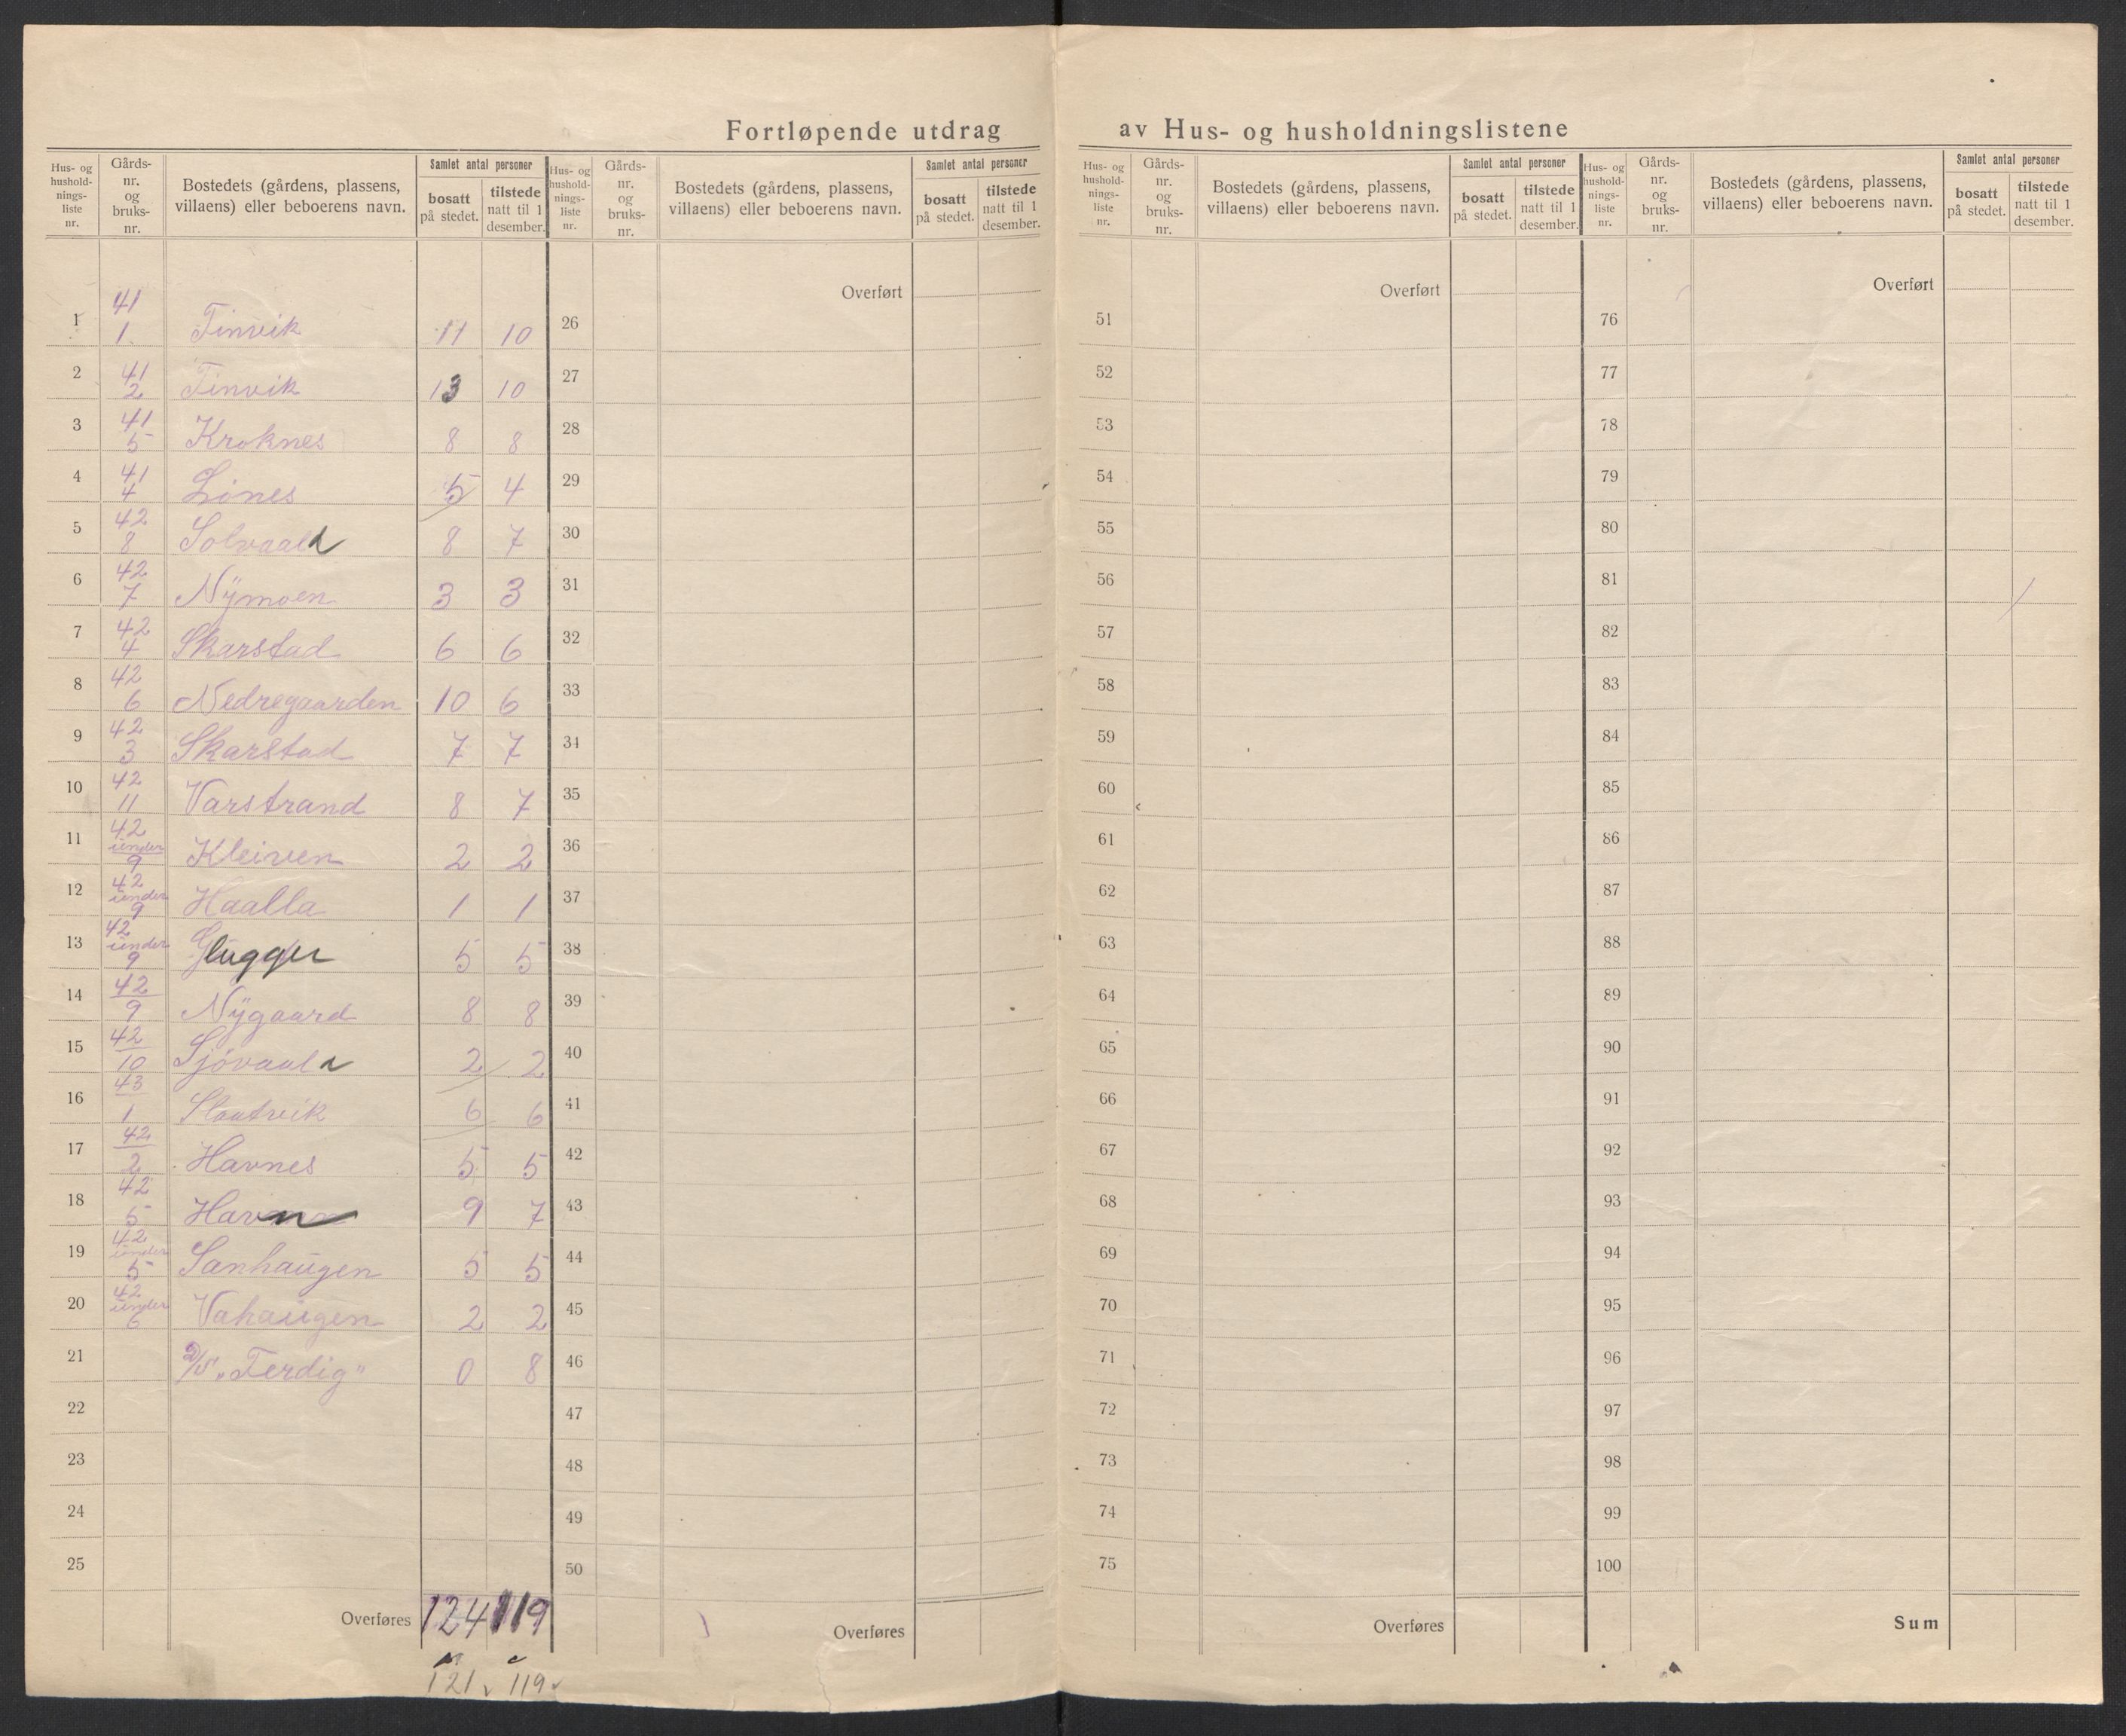 Fortløpende utdrag av Hus- og husholdningslistene
Hus- og hushold-nings-liste nr. | Gårds-nr. og bruks-nr. | Bostedets (gårdens, plassens, villaens) eller beboerens navn. | Samlet antal personer | bosatt på stedet. | tilstede natt til 1 desember.
Hus- og hushold-nings-liste nr. | Gårds-nr. og bruks-nr. | Bostedets (gårdens, plassens, villaens) eller beboerens navn. | Samlet antal personer | bosatt på stedet. | tilstede natt til 1 desember.
Hus- og hushold-nings-liste nr. | Gårds-nr. og bruks-nr. | Bostedets (gårdens, plassens, villaens) eller beboerens navn. | Samlet antal personer | bosatt på stedet. | tilstede natt til 1 desember.
Hus- og hushold-nings-liste nr. | Gårds-nr. og bruks-nr. | Bostedets (gårdens, plassens, villaens) eller beboerens navn. | Samlet antal personer | bosatt på stedet. | tilstede natt til 1 desember.
1 41/1 Finvik 11 10
2 41/2 Finvik 13 10
3 41/5 Kroknes 8 8
4 41/4 Lönes 5 4
5 42/8 Solvaald 8 7
6 42/7 Nÿmoen 3 3
7 42/4 Skarstad 6 6
8 42/6 Nedregaarden 10 6
9 42/3 Skarstad 7 7
10 42/11 Varstrand 8 7
11 42 under 9 Kleiven 2 2
12 42 under 9 Haalla 1 1
13 42 under 9 5 5
14 42/9 Nÿgaard 8 8
15 42/10 Sjövaald 2 2
16 43/1 Slaatvik 6 6
17 42/2 Havnes 5 5
18 42/5 Havn 9 7
19 42 under 5 Sanhaugen 5 5
20 42 under 6 Vahaugen 2 2
21 D/S "Ferdig" 0 8
22
23
24
25
Overføres 124 119
121 119
Overført
26
27
28
29
30
31
32
33
34
35
36
37
38
39
40
41
42
43
44
45
46
47
48
49
50
Overføres
Overført
51
52
53
54
55
56
57
58
59
60
61
62
63
64
65
66
67
68
69
70
71
72
73
74
75
Overføres
Overført
76
77
78
79
80
81
82
83
84
85
86
87
88
89
90
91
92
93
94
95
96
97
98
99
100
Sum